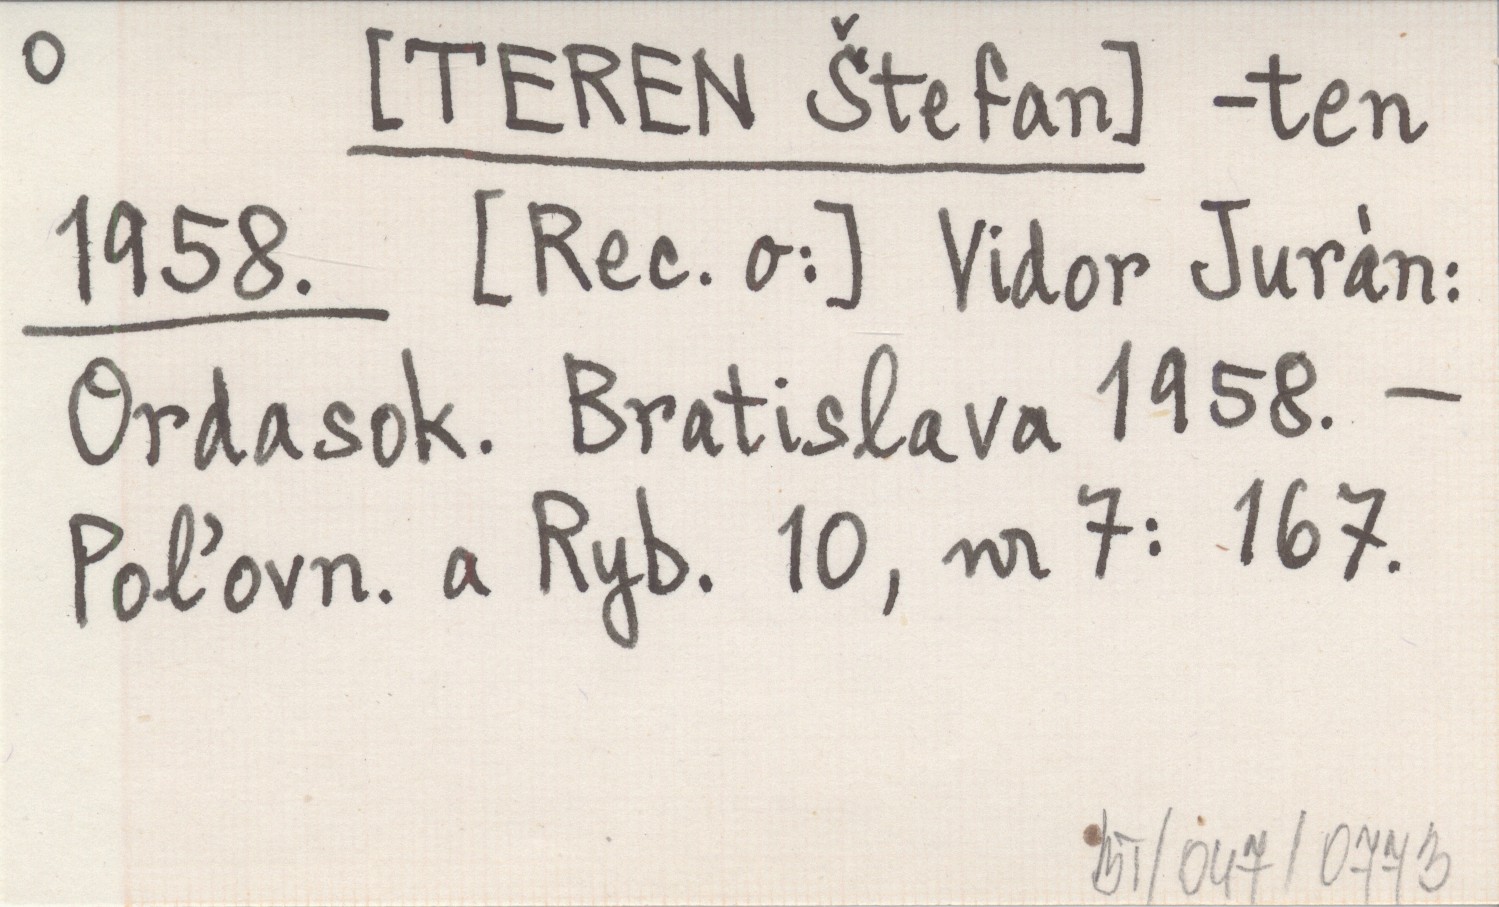 o [TEREN Štefan] -ten
1958. [Rec. o:] Vidor Jurán:
Ordasok. Bratislava 1958. —
Poľovn. a Ryb. 10, nr 7: 167.
/047/0773